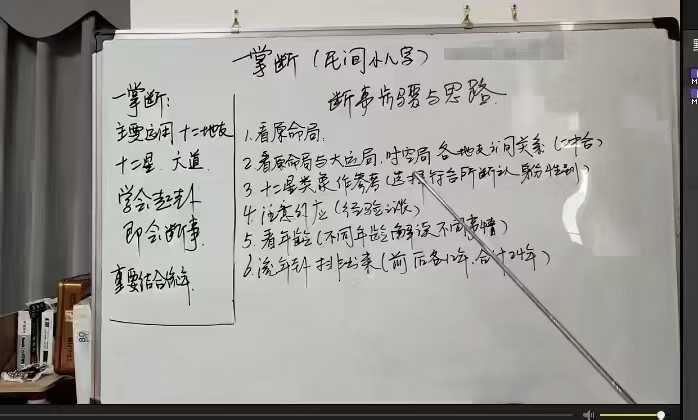 一掌断（民间小八字）
一掌断:
主要运用十二地支
十二星、六道
学会起卦
即会断事
重要结合流年
断事步骤与思路
1.看原命局.
2.看原命局与大运局.时空局各地支之间关系（二、十合）
3.十二星类象作参考（选择符合所断之人身份性别）
4.注意外应（经验之谈）
5.看年龄（不同年龄解读不同事情）
6.流年卦排出来（前后各12年,合计24年）